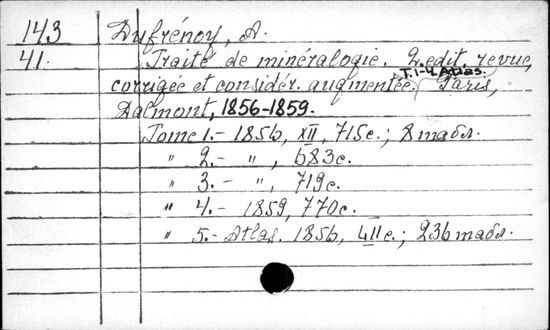 143 Dufrénoy, A.
41. Traité de minéralogie. 2 edit. revue,
corrigée et considér. augmentée. T.1-4, Atlas. Paris,
Dalmont, 1856-1859.
Tome 1.- 1856, XII, 715с.; 8 табл.
" 2.- ", 683с.
" 3.- ", 719с.
" 4.- 1859, 770с.
" 5.- Atlas. 1856, с.; 236 табл.